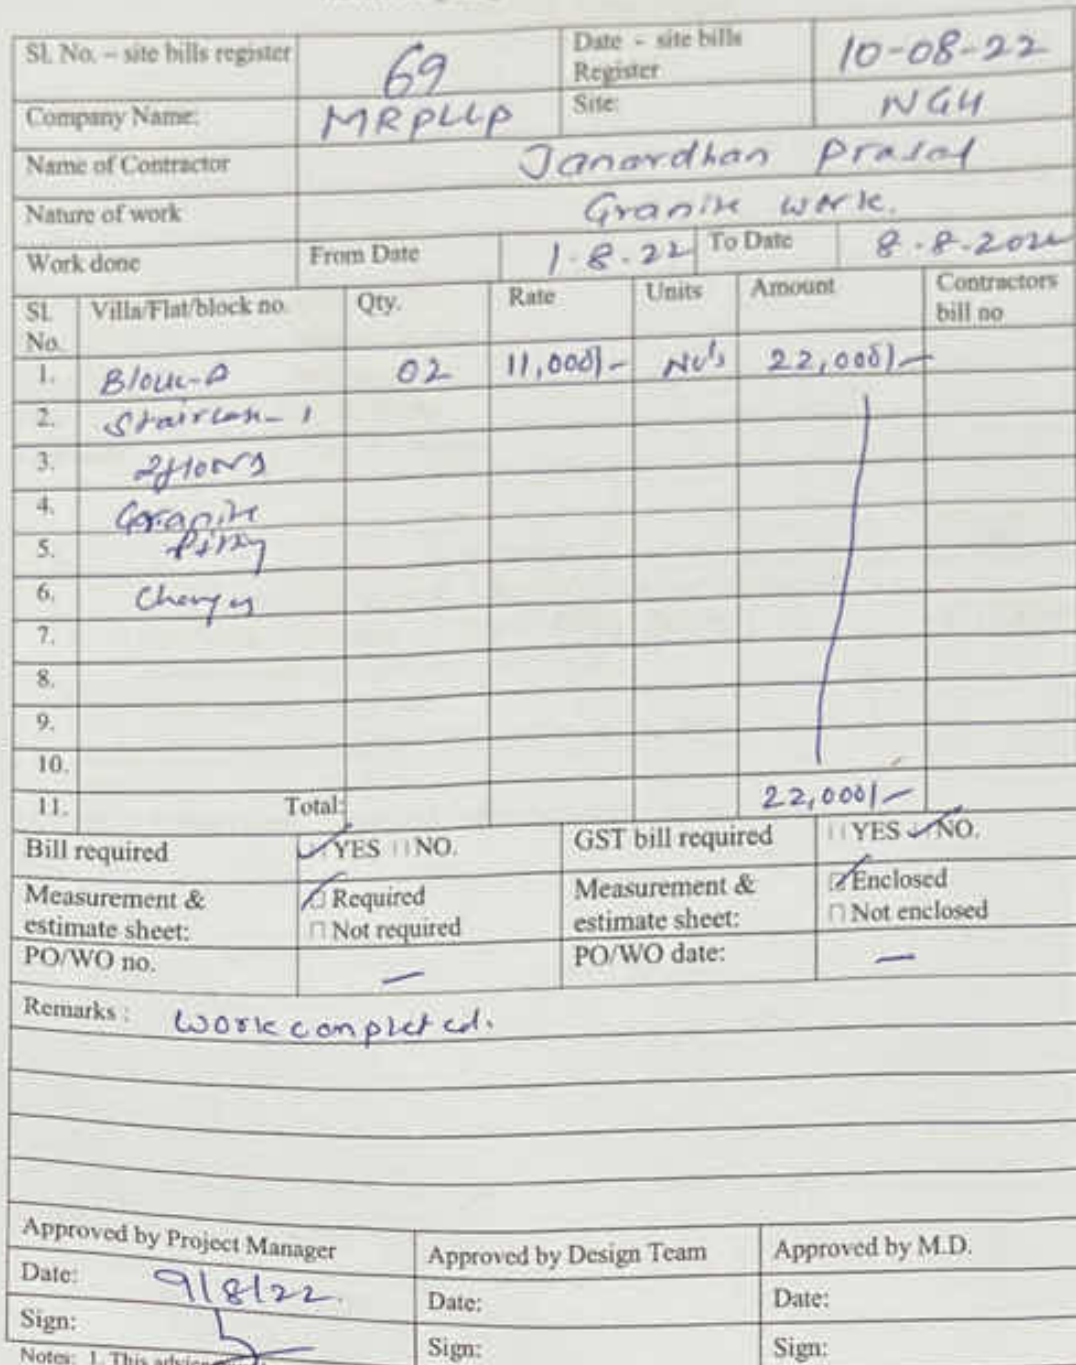 Sl. No. – site bills register 69 Date - site bills Register 10-08-22
Company Name: MRPLLP Site: NGH
Name of Contractor Janardhan Prasad
Nature of work Granite work.
Work done From Date 1-8-22 To Date 8-8-2022
Sl. No. Villa/Flat/block no. Qty. Rate Units Amount Contractors bill no
1. Block-A 02 11,000/- No's 22,000/-
2. Staircase- 1
3. 2floors
4. Granite
5.
6. Charges
7.
8.
9.
10.
11. Total: 22,000/-
Bill required YES NO. GST bill required YES NO.
Measurement & estimate sheet: Required Not required Measurement & estimate sheet: Enclosed Not enclosed
PO/WO no. – PO/WO date: –
Remarks : Work completed.
Approved by Project Manager Approved by Design Team Approved by M.D.
Date: 9/8/22. Date: Date:
Sign: Sign: Sign:
Notes: 1. This advice